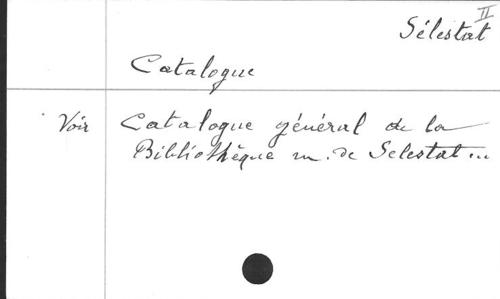 II
Sélestat
Catalogue
Voir Catalogue général de la
Bibliothèque m. de Selestat...